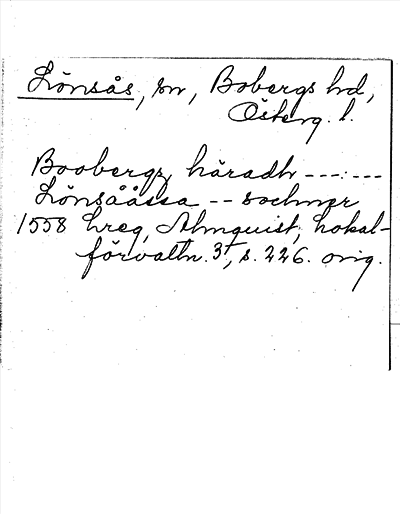 Lönsås, sn, Bobergs hd,
Österg. l.
Boobergz häradh ---:---
Lönsååssa -- sochner
1558 hreg, Almquist, Lokal-
förvaltn. 3+, s. 226. orig.